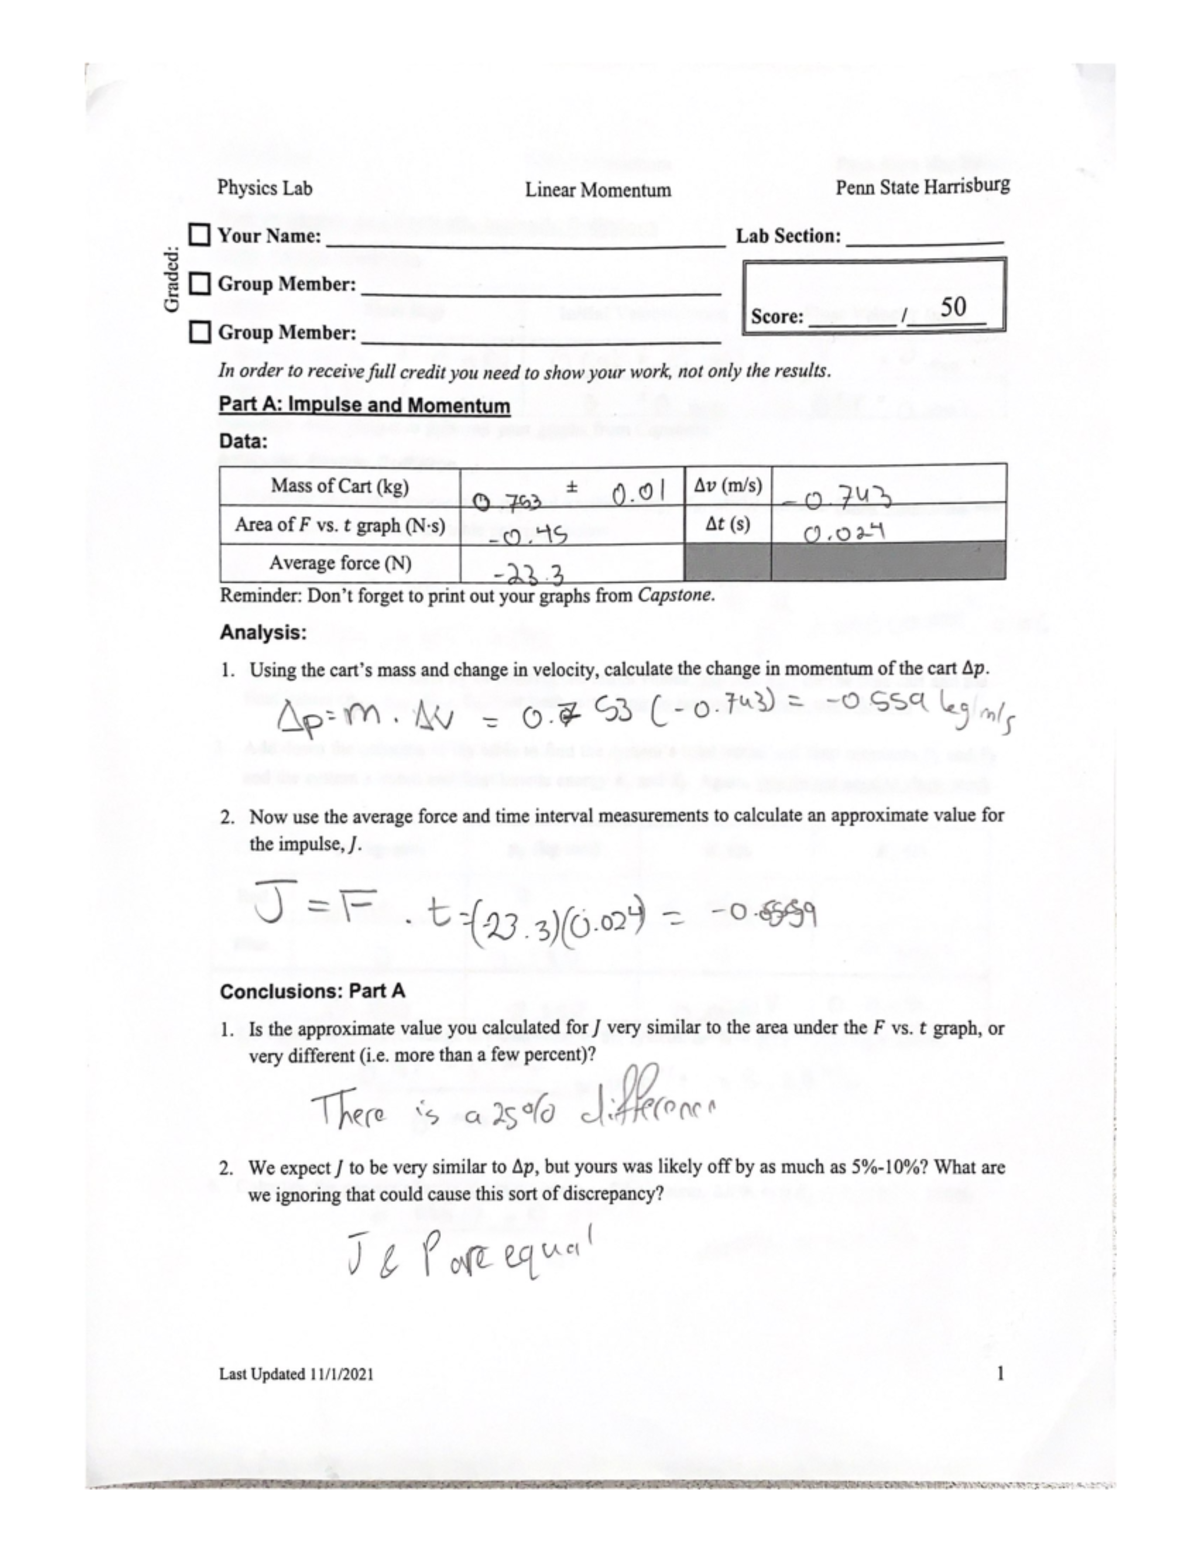 Physics Lab Linear Momentum Penn State Harrisburg
Graded:
Your Name: Lab Section:
Group Member:
Score: / 50
Group Member:
In order to receive full credit you need to show your work, not only the results.
Part A: Impulse and Momentum
Data:
Mass of Cart (kg) 0.753 ± 0.01 Δv (m/s) -0.743
Area of F vs. t graph (N·s) -0.45 Δt (s) 0.024
Average force (N) -23.3
Reminder: Don't forget to print out your graphs from Capstone.
Analysis:
1. Using the cart's mass and change in velocity, calculate the change in momentum of the cart Δp.
Δp = m . Δv = 0.753 (-0.743) = -0.559 kg/m/s
2. Now use the average force and time interval measurements to calculate an approximate value for
the impulse, J.
J = F . t = (-23.3)(0.024) = -0.559
Conclusions: Part A
1. Is the approximate value you calculated for J very similar to the area under the F vs. t graph, or
very different (i.e. more than a few percent)?
There is a 25% difference
2. We expect J to be very similar to Δp, but yours was likely off by as much as 5%-10%? What are
we ignoring that could cause this sort of discrepancy?
J & P are equal
Last Updated 11/1/2021 1